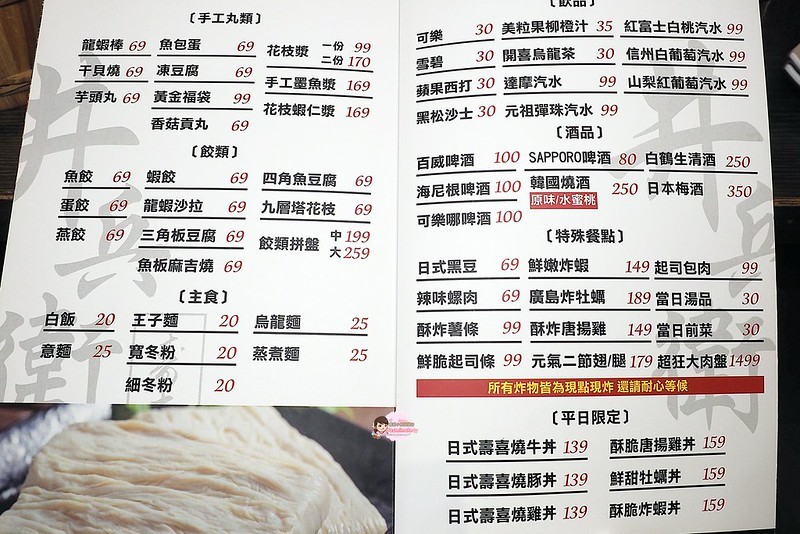 〔手工丸類〕
龍蝦棒 69 魚包蛋 69 花枝漿 一份 99 二份 170
干貝燒 69 凍豆腐 69 手工墨魚漿 169
芋頭丸 69 黃金福袋 99 花枝蝦仁漿 169
香菇貢丸 69
〔餃類〕
魚餃 69 蝦餃 69 四角魚豆腐 69
蛋餃 69 龍蝦沙拉 69 九層塔花枝 69
燕餃 69 三角板豆腐 69 餃類拼盤 中 199 大 259
魚板麻吉燒 69
〔主食〕
白飯 20 王子麵 20 烏龍麵 25
意麵 25 寬冬粉 20 蒸煮麵 25
細冬粉 20
井兵衛
〔飲品〕
可樂 30 美粒果柳橙汁 35 紅富士白桃汽水 99
雪碧 30 開喜烏龍茶 30 信州白葡萄汽水 99
蘋果西打 30 達摩汽水 99 山梨紅葡萄汽水 99
黑松沙士 30 元祖彈珠汽水 99
〔酒品〕
百威啤酒 100 SAPPORO啤酒 80 白鶴生清酒 250
海尼根啤酒 100 韓國燒酒 原味/水蜜桃 250 日本梅酒 350
可樂哪啤酒 100
〔特殊餐點〕
日式黑豆 69 鮮嫩炸蝦 149 起司包肉 99
辣味螺肉 69 廣島炸牡蠣 189 當日湯品 30
酥炸薯條 99 酥炸唐揚雞 149 當日前菜 30
鮮脆起司條 99 元氣二節翅/腿 179 超狂大肉盤 1499
所有炸物皆為現點現炸 還請耐心等候
〔平日限定〕
日式壽喜燒牛丼 139 酥脆唐揚雞丼 159
日式壽喜燒豚丼 139 鮮甜牡蠣丼 159
日式壽喜燒雞丼 139 酥脆炸蝦丼 159
井兵衛